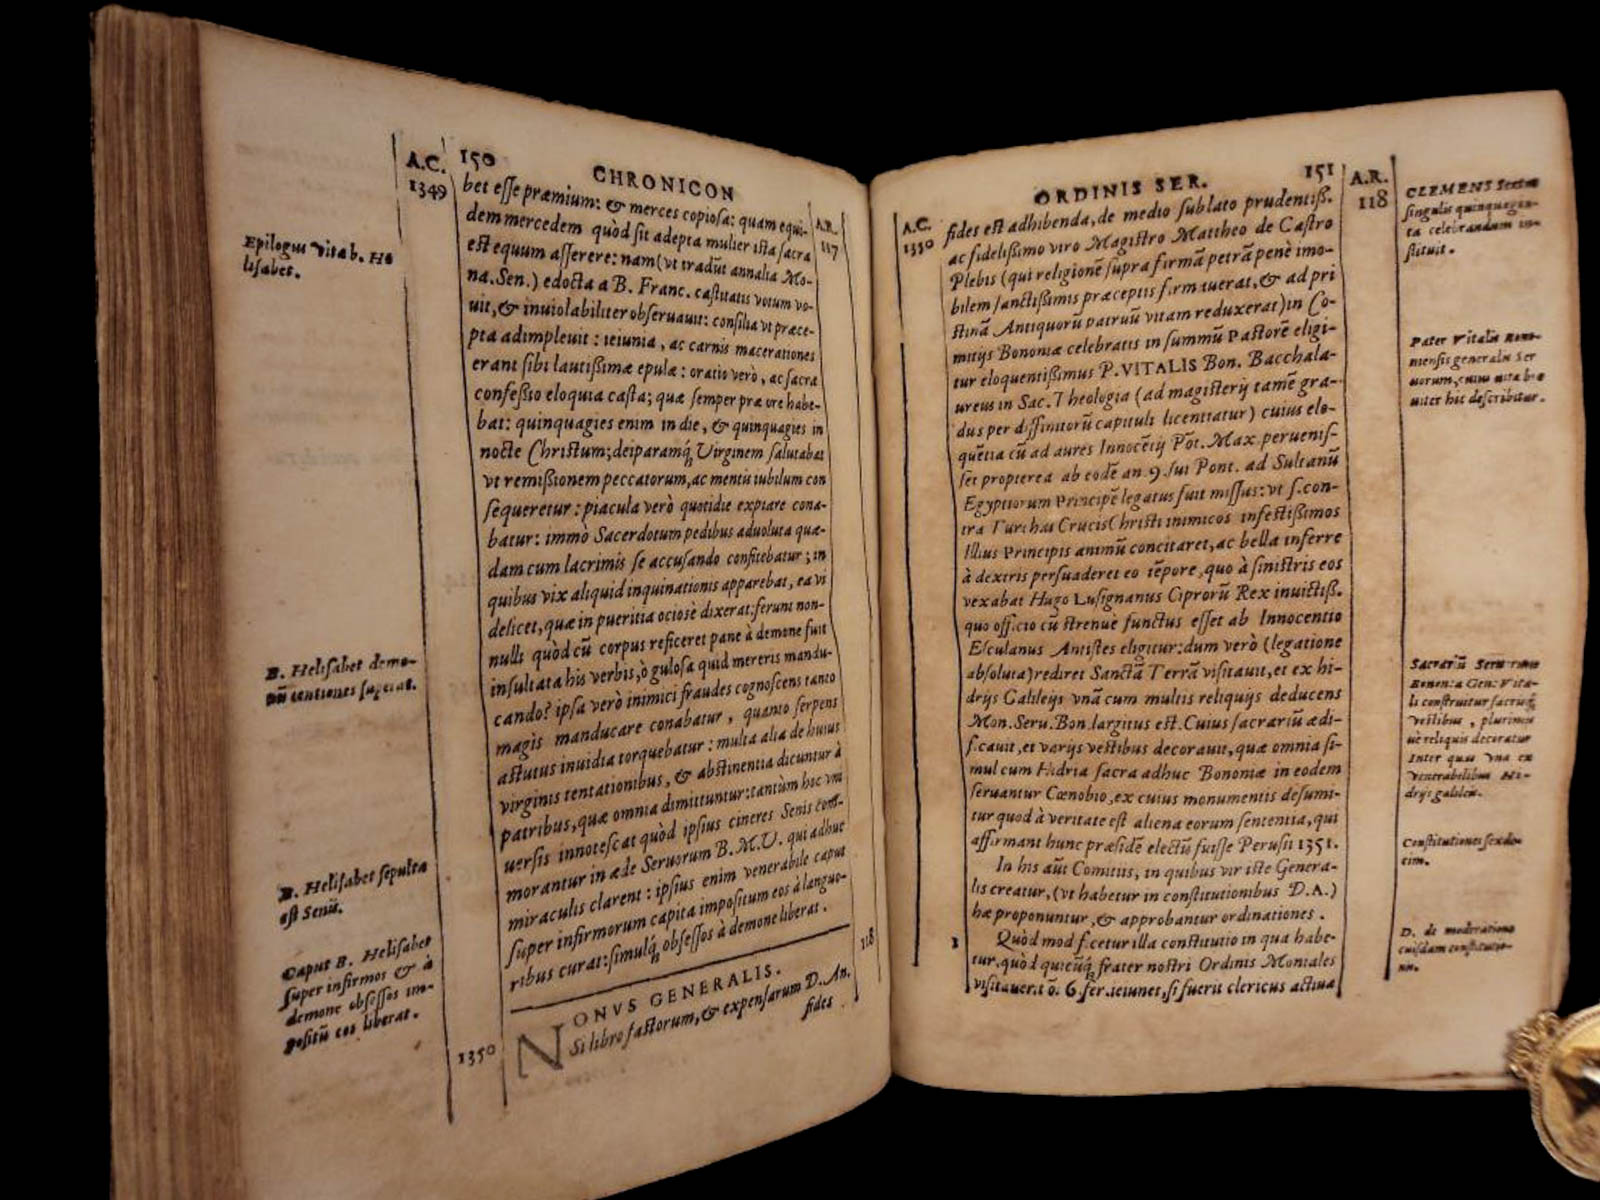 A.C. 150 CHRONICON
1349
bet esse præmium: & merces copiosa: quam equi-
A.R.
117
demmercedem quòd sit adepta mulier ista sacra
est equum asserere: nam (vt tradūt annalia Mo-
na. Sen.) edocta a B. Franc. castitatis votum vo-
uit, & inuiolabiliter obseruauit: consilia vt præce-
pta adimpleuit: ieiunia, ac carnis macerationes
erant sibi lautissimæ epulæ: oratio verò, ac sacra
confessio eloquia casta; quæ semper præ ore habe-
bat: quinquagies enim in die, & quinquagies in
nocte Christum; deiparamq́; Virginem salutabat
vt remissionem peccatorum, ac mentis iubilum con
sequeretur: piacula verò quotidie expiare cona-
batur: immò Sacerdotum pedibus aduoluta quæ-
dam cum lacrimis se accusando confitebatur; in
quibus vix aliquid inquinationis apparebat, ea vi
delicet, quæ in pueritia ociosè dixerat: ferunt non-
nulli quòd cū corpus reficeret pane à demone fuit
insultata his verbis, ò gulosa quid mereris mandu-
cando? ipsa verò inimici fraudes cognoscens tanto
magis manducare conabatur, quanto serpens
astutus inuidia torquebatur: multa alia de huius
virginis tentationibus, & abstinentia dicuntur à
patribus, quæ omnia dimittuntur: tantùm hoc vni
uersis innotescat quòd ipsius cineres Senis com̄-
morantur in æde Seruorum B. M. V. qui adhuc
miraculis clarent: ipsius enim venerabile caput
super infirmorum capita impositum eos à languo-
ribus curat: simulq́; obsessos à demone liberat.
118
NONVS GENERALIS.
1350
Si libro factorum, & expensarum D. An.
fides
Epilogus vitæ b. He
lisabet.
B. Helisabet demo-
nū tentiones superat.
B. Helisabet sepulta
est Senis.
Caput B. Helisabet
super infirmos & à
demone obsessos im-
positū eos liberat.
ORDINIS SER. 151 A.R.
118
A.C.
1350
fides est adhibenda, de medio sublato prudentiss.
ac fidelissimo viro Magistro Mattheo de Castro
Plebis (qui religionē supra firmā petrā penè imo-
bilem sanctissimis præceptis firmauerat, & ad pri
stinā Antiquorū patruū vitam reduxerat) in Co-
mitijs Bononiæ celebratis in summū Pastorē eligi-
tur eloquentissimus P. VITALIS Bon. Bacchala-
ureus in Sac. Theologia (ad magisterij tamē gra-
dus per diffinitorū capituli licentiatur) cuius elo-
quētia cū ad aures Innocētij Pōt. Max. peruenis-
set propterea ab eodē an. 9. sui Pont. ad Sultanū
Egyptiorum Principē legatus fuit missus: vt s. con-
tra Turchas Crucis Christi inimicos infestissimos
Illius Principis animū concitaret, ac bella inferre
à dextris persuaderet eo tēpore, quo à sinistris eos
vexabat Hugo Lusignanus Ciprorū Rex inuictiss.
quo officio cū strenuè functus esset ab Innocentio
Esculanus Antistes eligitur: dum verò (legatione
absoluta) rediret Sanctā Terrā visitauit, et ex hi-
drijs Galileis vnā cum multis reliquijs deducens
Mon. Seru. Bon. largitus est. Cuius sacrariū ædi-
ficauit, et varijs vestibus decorauit, quæ omnia si-
mul cum Hidria sacra adhuc Bononiæ in eodem
seruantur Cœnobio, ex cuius monumentis desumi-
tur quod à veritate est aliena eorum sententia, qui
affirmant hunc præsidē electū fuisse Perusij 1351.
In his aūt Comitiis, in quibus vir iste Genera-
lis creatur, (vt habetur in constitutionibus D. A.)
hæ proponuntur, & approbantur ordinationes.
1 Quòd modificetur illa constitutio in qua habe-
tur, quòd quicūq́; frater nostri Ordinis Moniales
visitauerit ō. 6. fer. ieiunet, si fuerit clericus actiua
CLEMENS Sextus
singulis quinquagin-
ta celebrandum in-
stituit.
Pater Vitalis Bono-
niensis generalis Ser
uorum, cuius vita bre
uiter hic describitur.
Sacrariū Seruorum
Bononiæ Gen: Vita-
li construitur sacrisq́;
vestibus, plurimis
uè reliquis decoratur
Inter quas vna ex
venerabilibus Hi-
drijs galileis.
Constitutiones sexde-
cim.
D. de moderatione
cuiusdam constitutio-
nis.